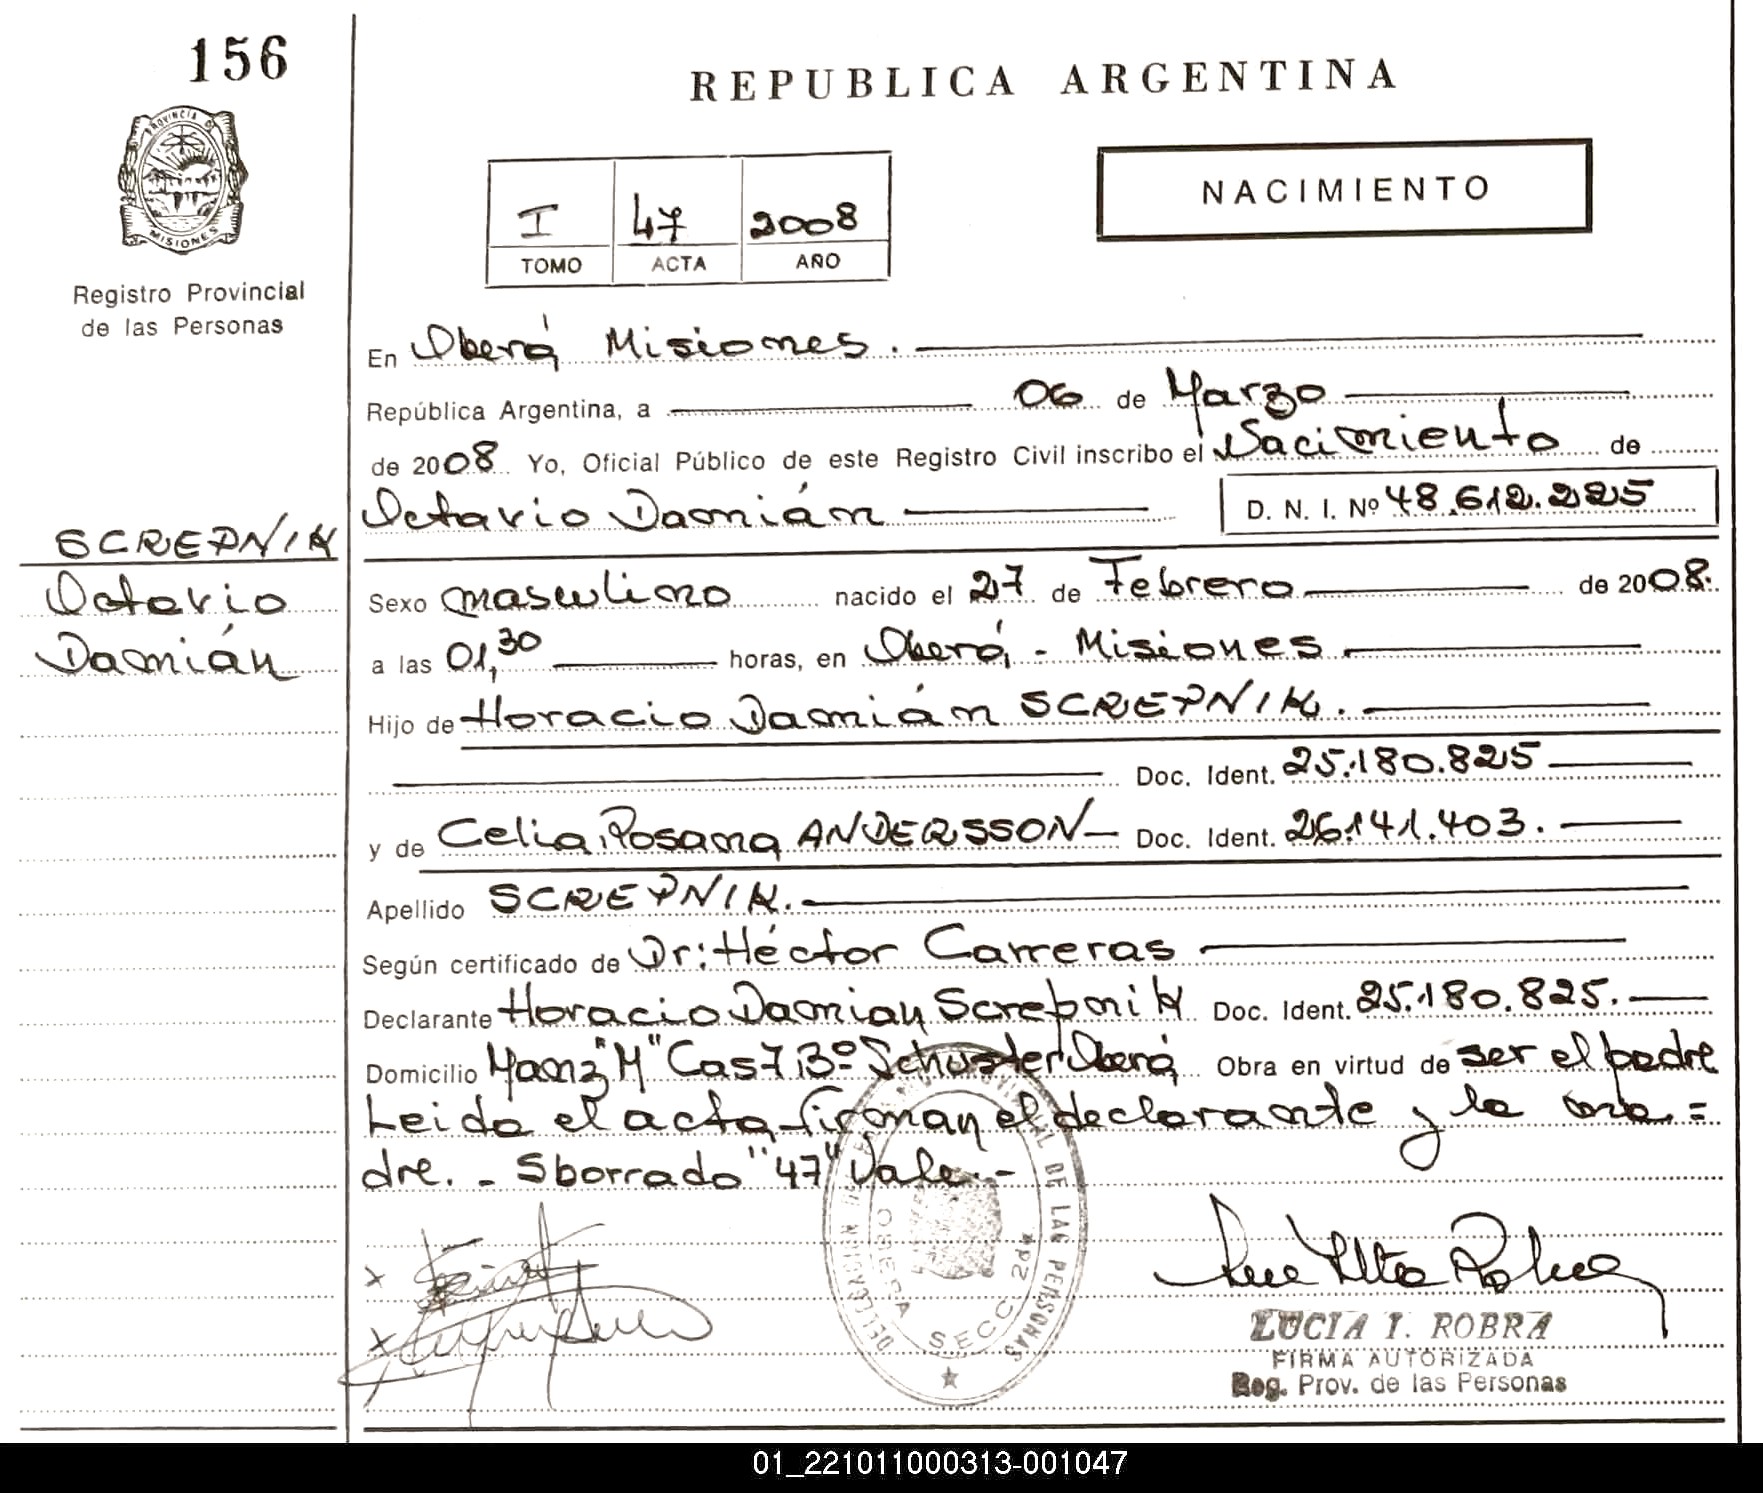 156
REPUBLICA ARGENTINA
PROVINCIA D
MISIONES
Registro Provincial
de las Personas
I 47 2008
TOMO ACTA AÑO
NACIMIENTO
En Oberá Misiones.
República Argentina, a 06 de Marzo
de 2008 Yo, Oficial Público de este Registro Civil inscribo el Nacimiento de
Octavio Damián D. N. I. Nº 48.612.225
SCREPNIK
Octavio
Damián
Sexo masculino nacido el 27 de Febrero de 2008.
a las 01,30 horas, en Oberá - Misiones
Hijo de Horacio Damián SCREPNIK.
Doc. Ident. 25.180.825
y de Celia Rosana ANDERSSON Doc. Ident. 26.141.403.
Apellido SCREPNIK.
Según certificado de Dr: Héctor Carreras
Declarante Horacio Damian Screpnik Doc. Ident. 25.180.825.
Domicilio Manz "M" Cas 7 Bº Schuster Oberá Obra en virtud de ser el padre
Leida el acta firman el declarante y la ma=
dre. - Sborrado "47" Vale.-
DELEGACION DE LAS PERSONAS
OBERA SECC. 2da
LUCIA I. ROBRA
FIRMA AUTORIZADA
Reg. Prov. de las Personas
01_221011000313-001047